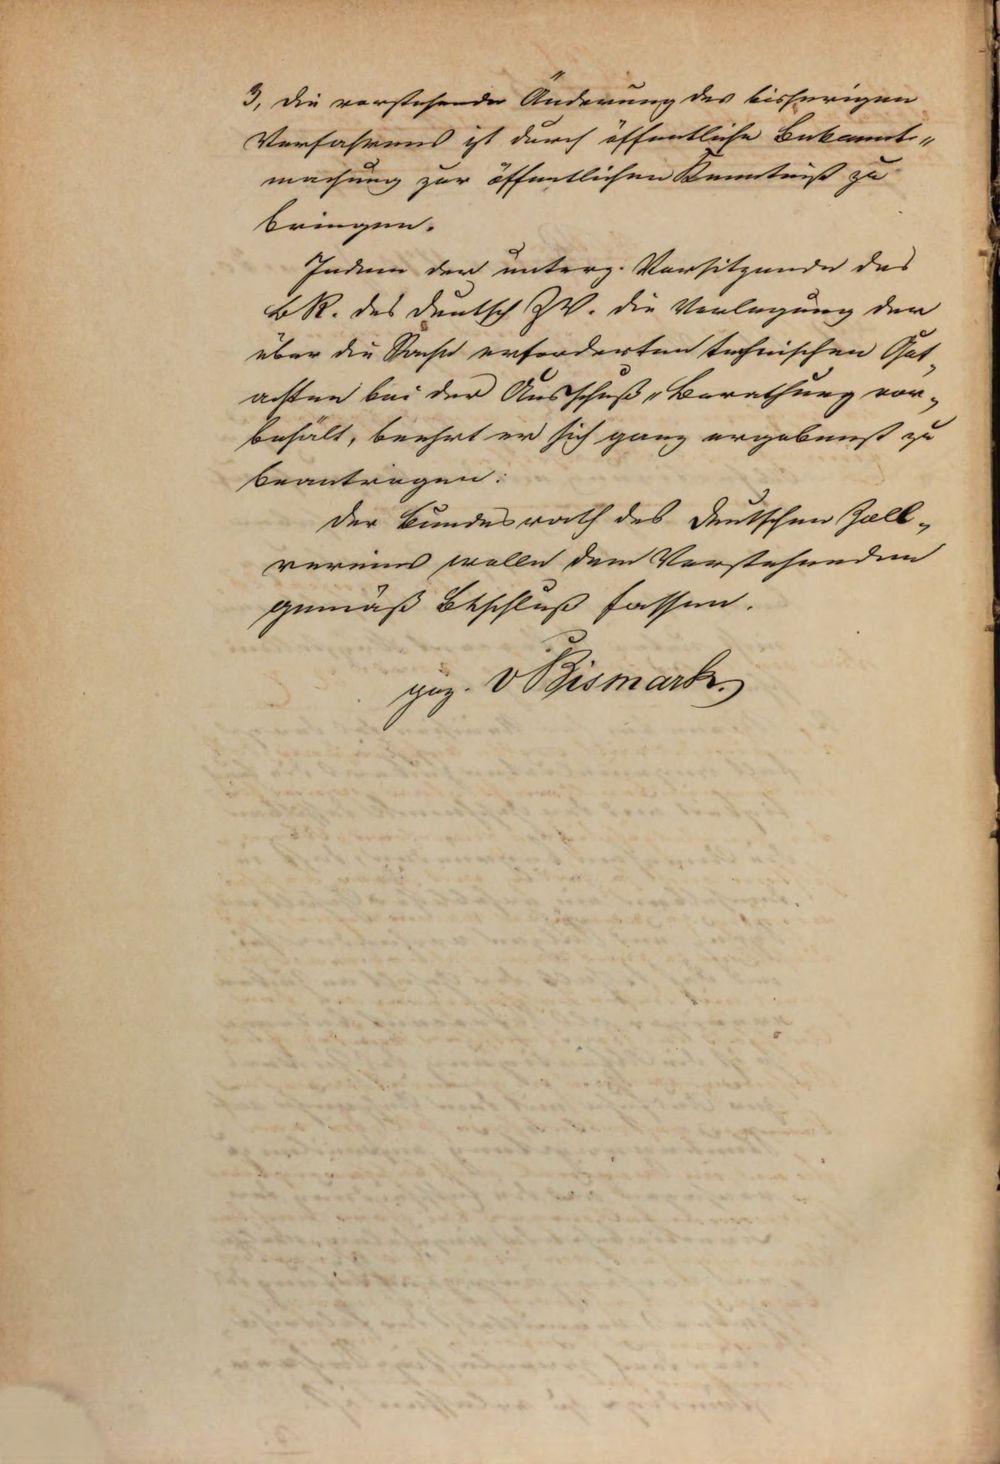 3, die vorstehende Änderung des bisherigen
Verfahrens ist durch öffentliche Bekannt-
machung zur öffentlichen Kenntniß zu
bringen.
Indem der unterz. Vorsitzende des
BR. des deutsch ZV. die Vorlegung der
über die Sache erforderten technischen Gut-
achten bei der Ausschuß-Berathung vor-
behält, beehrt er sich ganz ergebenst zu
beantragen:
Der Bundesrath des deutschen Zoll-
vereins wolle dem Vorstehenden
gemäß Beschluß fassen.
gez. v Bismark.